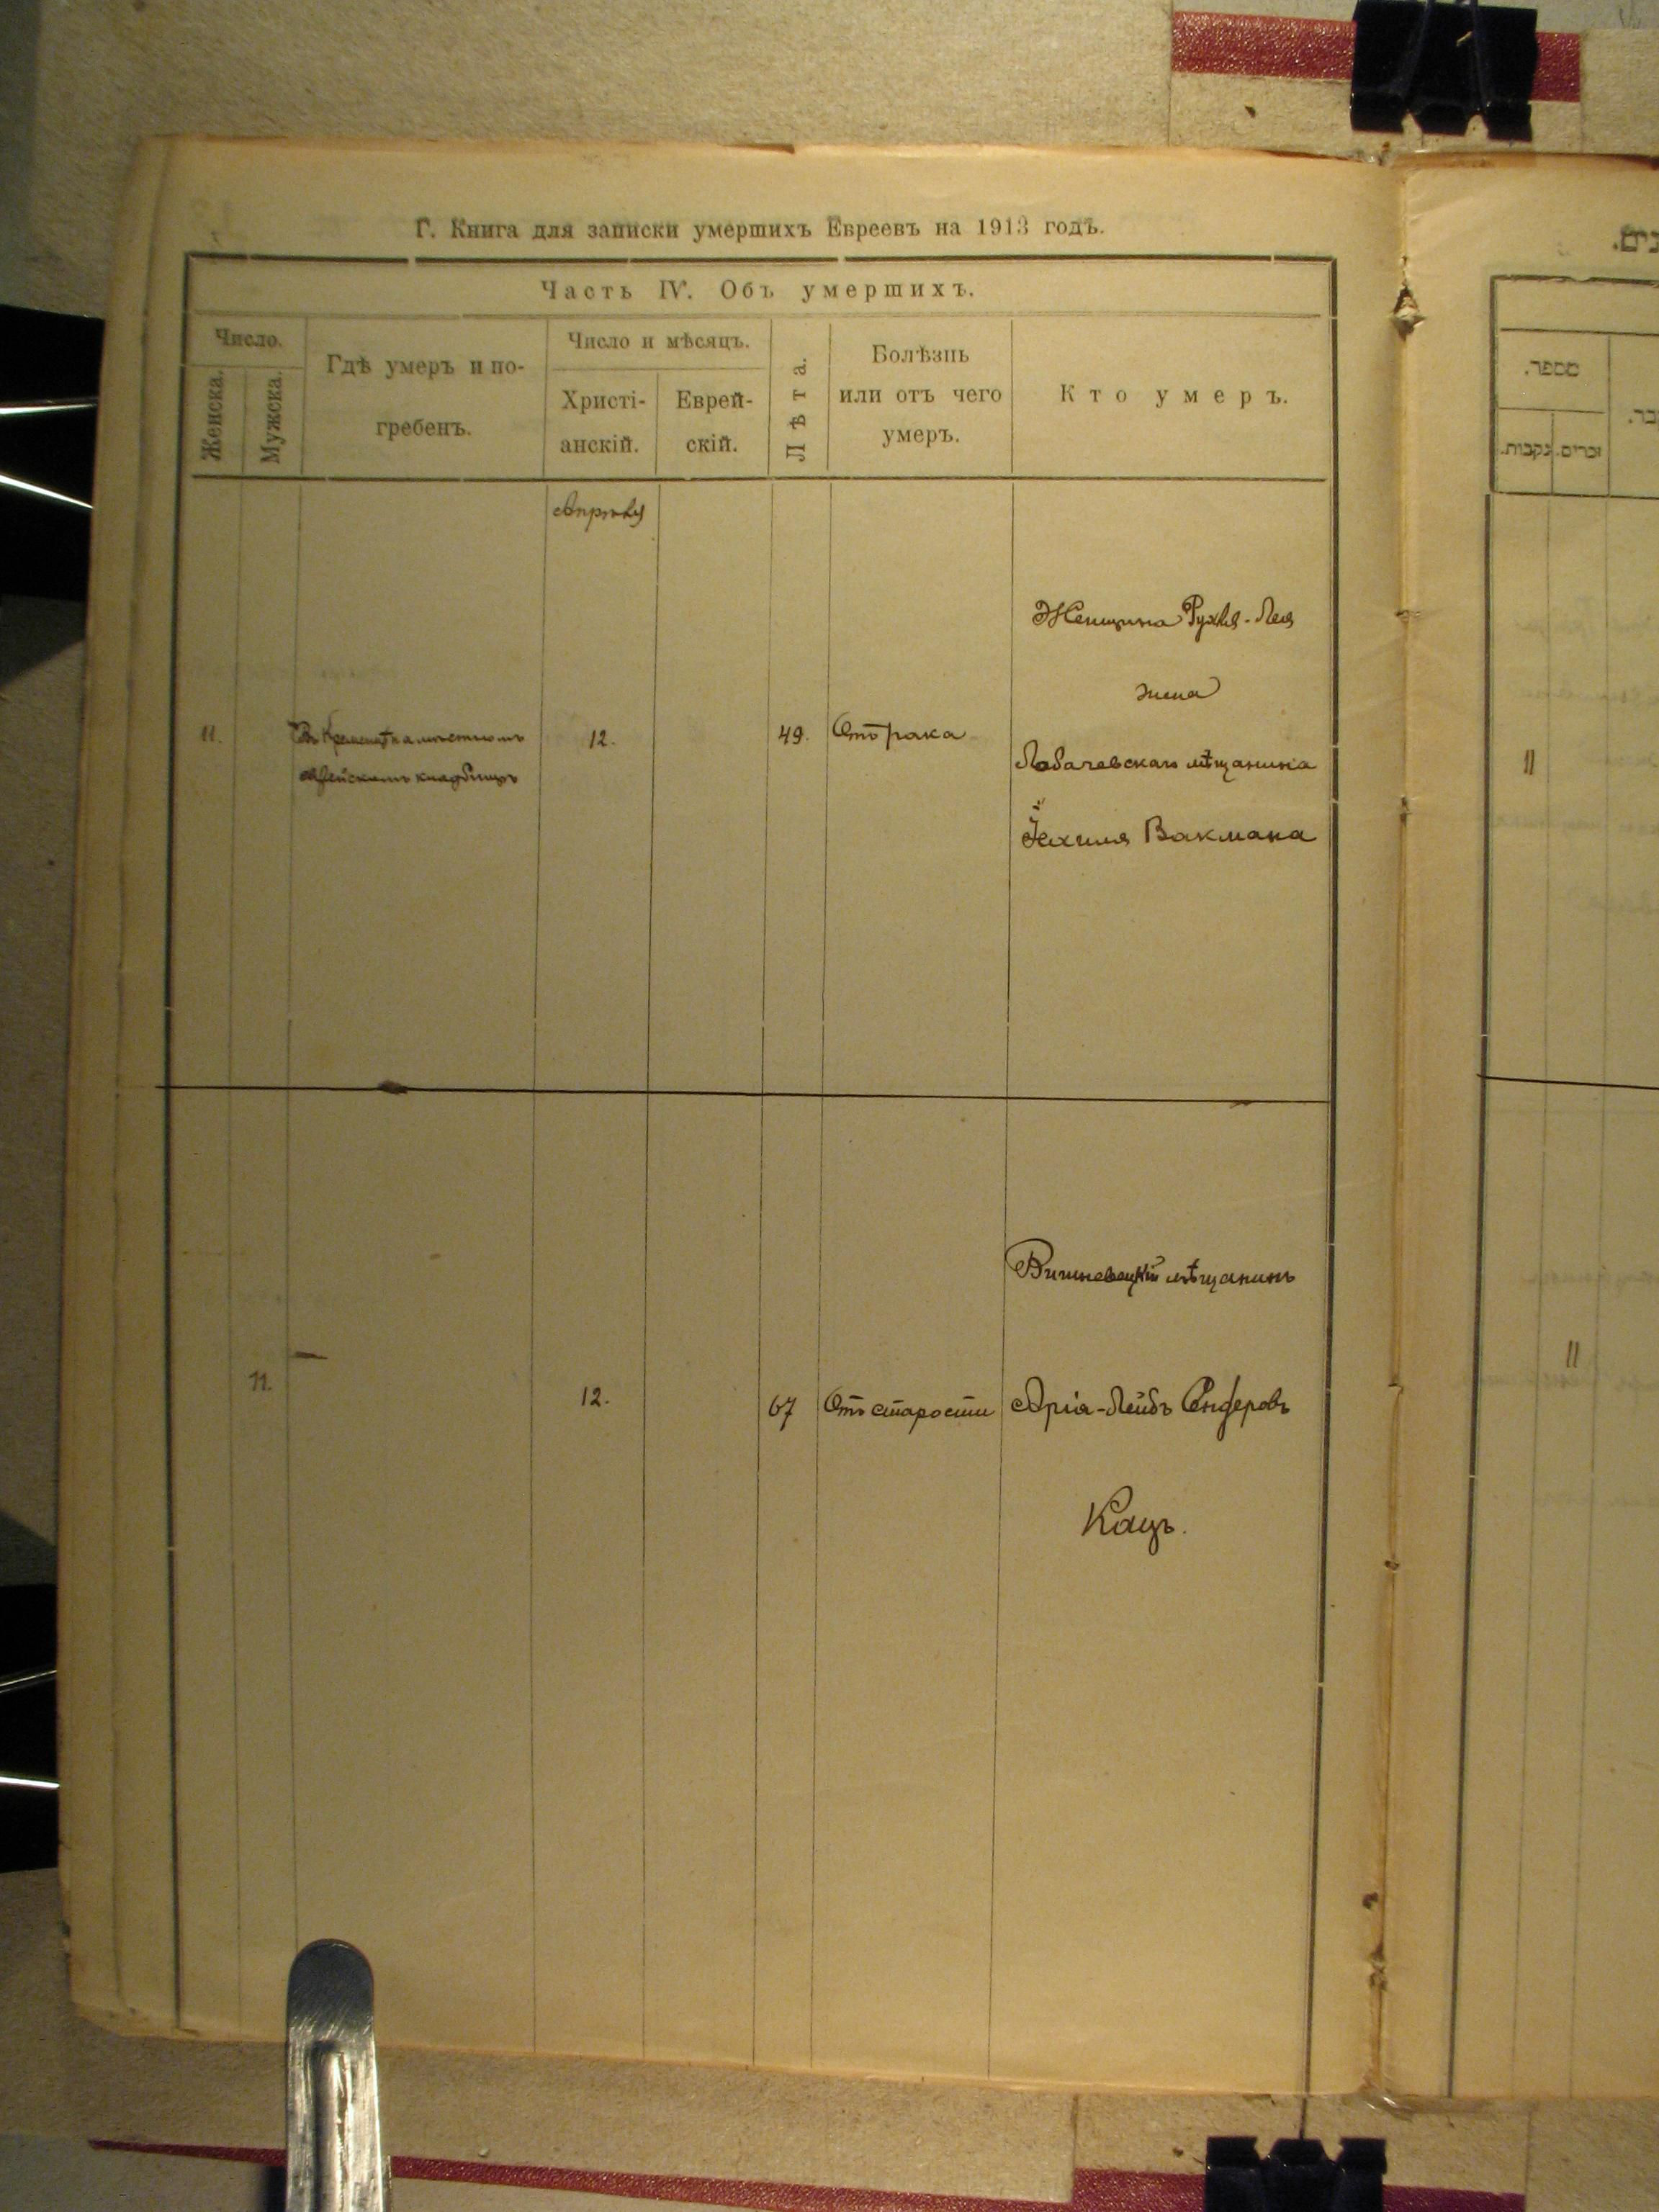 Г. Книга для записки умершихъ Евреевъ на 1913 годъ.
Часть IV. Объ умершихъ.
Число.
Женска.
Мужска.
Гдѣ умеръ и по-
гребенъ.
Число и мѣсяцъ.
Христі-
анскій.
Еврей-
скій.
Лѣта.
Болѣзнь
или отъ чего
умеръ.
Кто умеръ.
Апрѣль
Женщина Рухля-Лея
жена
11.
Въ Кременцѣ на мѣстномъ
еврейскомъ кладбищѣ
12.
49.
Отъ рака
Лобачевскаго мѣщанина
Іехиля Вакмана
Вишневецкій мѣщанинъ
11.
12.
67
Отъ старости
Арія-Лейбъ Сендеровъ
Кацъ.
מספר.
זכרים.
נקבות.
11
11